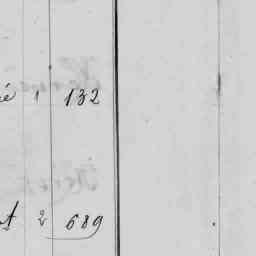 é 1 132
t 2 689